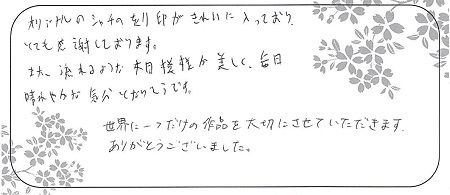 オリジナルのシャチの刻印がきれいに入っており、
とても感謝しております。
また、流れるような木目模様が美しく、毎日
晴れやかな気分になりそうです。
世界に一つだけの作品を大切にさせていただきます。
ありがとうございました。